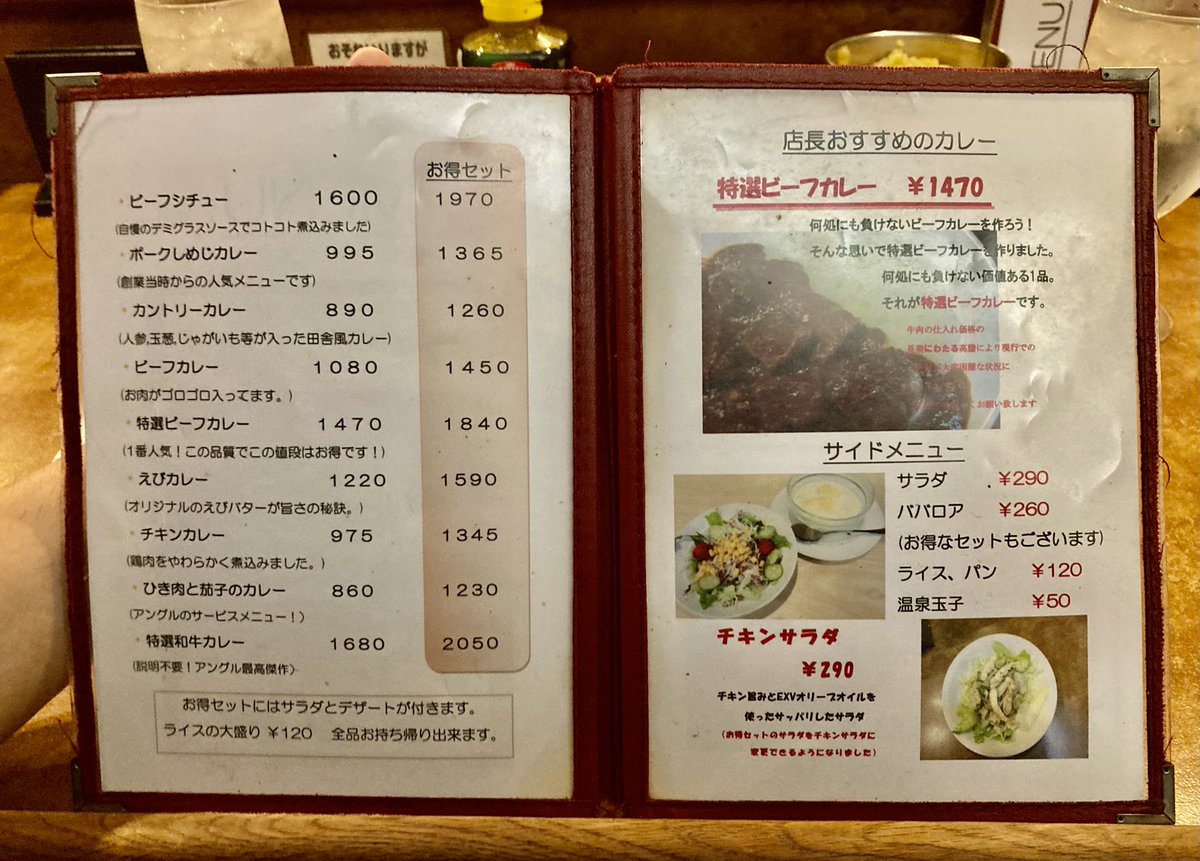 おそれいりますが
ENU
お得セット
・ビーフシチュー 1600 1970
(自慢のデミグラスソースでコトコト煮込みました)
・ポークしめじカレー 995 1365
(創業当時からの人気メニューです)
・カントリーカレー 890 1260
(人参,玉葱,じゃがいも等が入った田舎風カレー)
・ビーフカレー 1080 1450
(お肉がゴロゴロ入ってます。)
・特選ビーフカレー 1470 1840
(1番人気！この品質でこの値段はお得です！)
・えびカレー 1220 1590
(オリジナルのえびバターが旨さの秘訣。)
・チキンカレー 975 1345
(鶏肉をやわらかく煮込みました。)
・ひき肉と茄子のカレー 860 1230
(アングルのサービスメニュー！)
・特選和牛カレー 1680 2050
(説明不要！アングル最高傑作)
お得セットにはサラダとデザートが付きます。
ライスの大盛り ¥120 全品お持ち帰り出来ます。
店長おすすめのカレー
特選ビーフカレー ¥1470
何処にも負けないビーフカレーを作ろう！
そんな思いで特選ビーフカレーを作りました。
何処にも負けない価値ある1品。
それが特選ビーフカレーです。
牛肉の仕入れ価格の
長期にわたる高騰により現行での
大変困難な状況に
お願い致します
サイドメニュー
サラダ ¥290
ババロア ¥260
(お得なセットもございます)
ライス、パン ¥120
温泉玉子 ¥50
チキンサラダ
¥290
チキン旨みとEXVオリーブオイルを
使ったサッパリしたサラダ
(お得セットのサラダをチキンサラダに
変更できるようになりました)